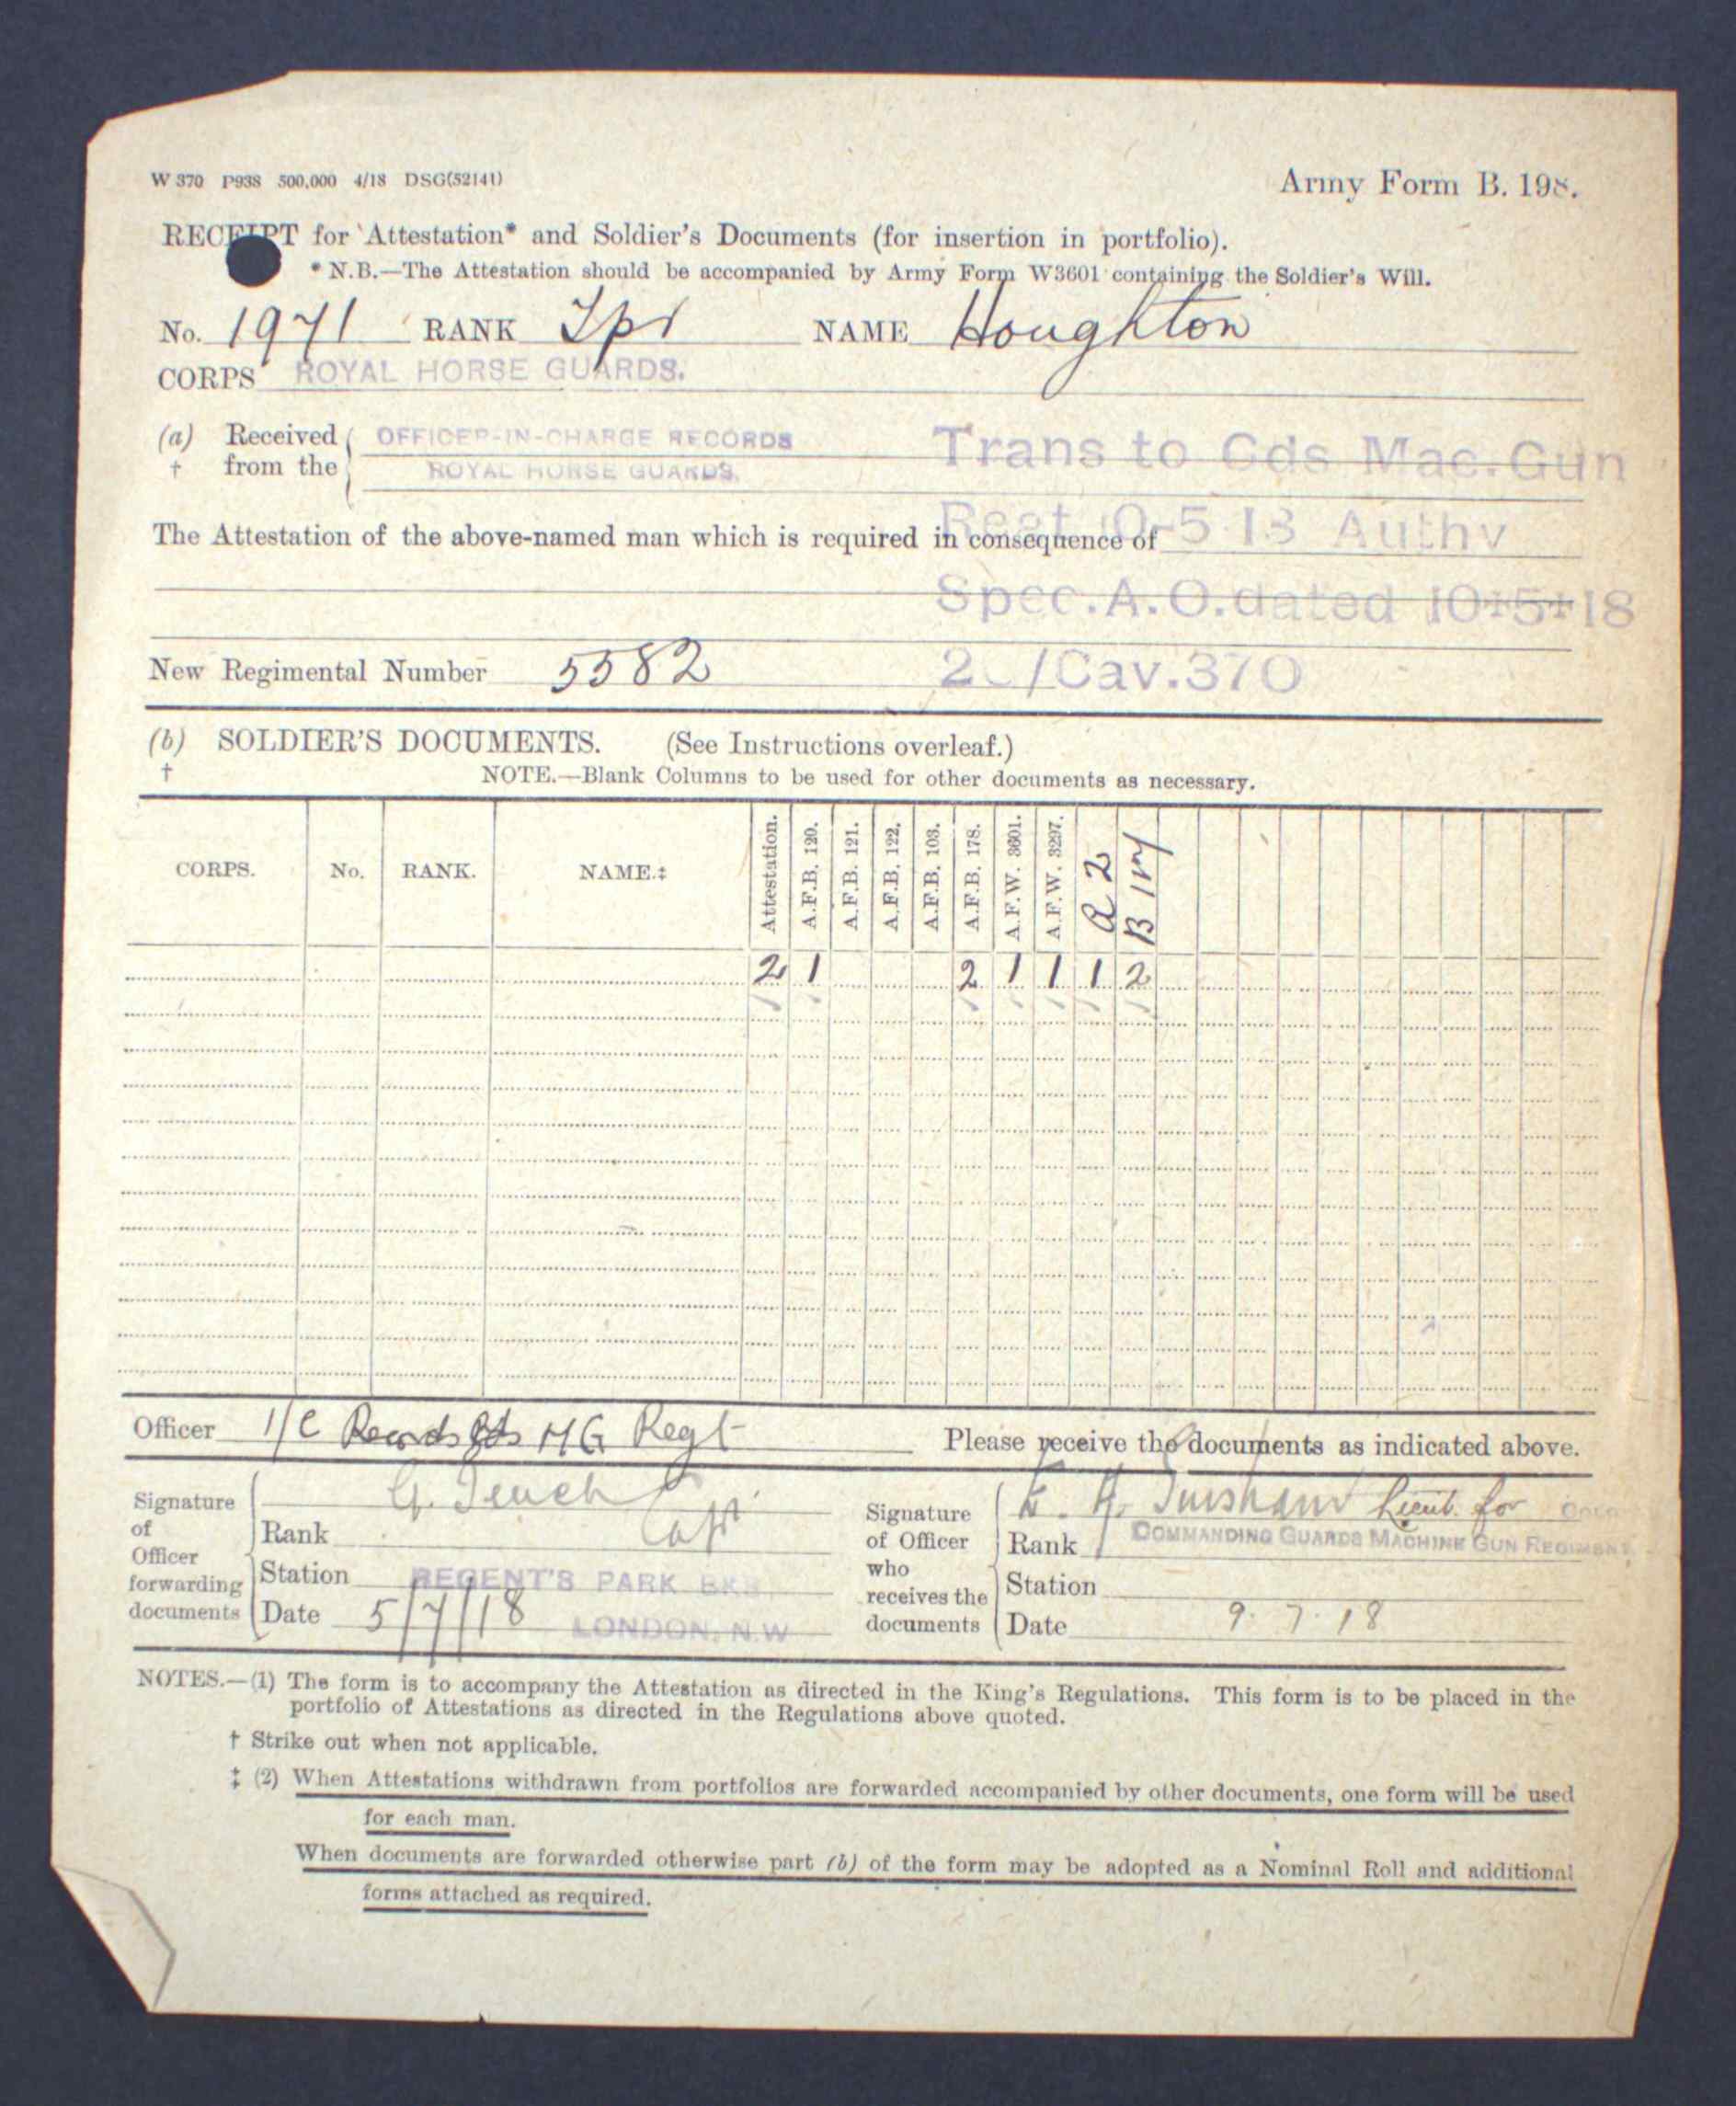 W 370 P938 500,000 4/18 DSG(52141)
Army Form B. 198.
RECEIPT for Attestation* and Soldier's Documents (for insertion in portfolio).
* N.B.—The Attestation should be accompanied by Army Form W3601 containing the Soldier's Will.
No. 1971 RANK Tpr NAME Houghton
CORPS ROYAL HORSE GUARDS.
(a) Received OFFICER-IN-CHARGE RECORDS Trans to Gds Mac. Gun
† from the ROYAL HORSE GUARDS.
The Attestation of the above-named man which is required in consequence of
Regt 10-5 18 Authy
Spec. A. O. dated 10+5+18
New Regimental Number 5582 /Cav. 370
(b) SOLDIER'S DOCUMENTS. (See Instructions overleaf.)
† NOTE.—Blank Columns to be used for other documents as necessary.
CORPS. No. RANK. NAME.‡ Attestation. A.F.B. 120. A.F.B. 121. A.F.B. 122. A.F.B. 103. A.F.B. 178. A.F.W. 3601. A.F.W. 3297. a 2 B
2 1 2 1 1 1 2
Officer I/C Records Gds MG Regt Please receive the documents as indicated above.
Signature of Officer forwarding documents
Rank Capt
Station REGENT'S PARK BKS
Date 5/7/18 LONDON, N.W
Signature of Officer who receives the documents Lieut. for
Rank COMMANDING GUARDS MACHINE GUN REGIMENT.
Station
Date 9. 7. 18
NOTES.—(1) The form is to accompany the Attestation as directed in the King's Regulations. This form is to be placed in the
portfolio of Attestations as directed in the Regulations above quoted.
† Strike out when not applicable.
‡ (2) When Attestations withdrawn from portfolios are forwarded accompanied by other documents, one form will be used
for each man.
When documents are forwarded otherwise part (b) of the form may be adopted as a Nominal Roll and additional
forms attached as required.